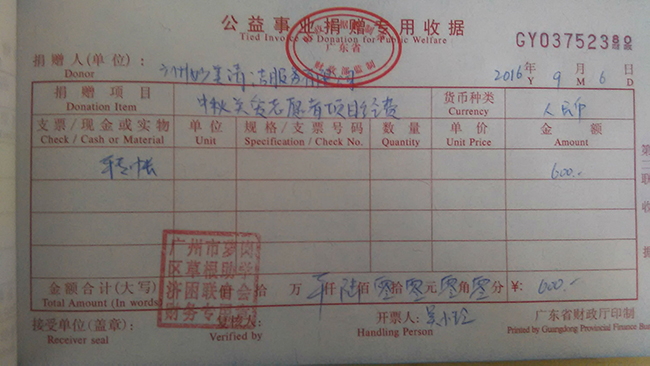 公益事业捐赠专用收据
Tied Invoice Donation for Public Welfare
广东省
财政部监制
GY03752380
捐赠人(单位):
Donor
2016 年 9 月 6 日
Y M D
捐赠项目 中秋关爱志愿者项目经费 货币种类 人民币
Donation Item Currency
支票/现金或实物 单位 规格/支票号码 数量 单价 金额
Check / Cash or Material Unit Specification / Check No. Quantity Unit Price Amount
转帐 600.-
第二联 收据
广州市萝岗
区草根助学
济困联合会
财务专用
金额合计(大写) 拾 万 仟 陆 佰 零 拾 零 元 零 角 零 分 ¥: 600.-
Total Amount (In words)
接受单位(盖章): 复核人: 开票人: 广东省财政厅印制
Receiver seal Verified by Handling Person Printed by Guangdong Provincial Finance